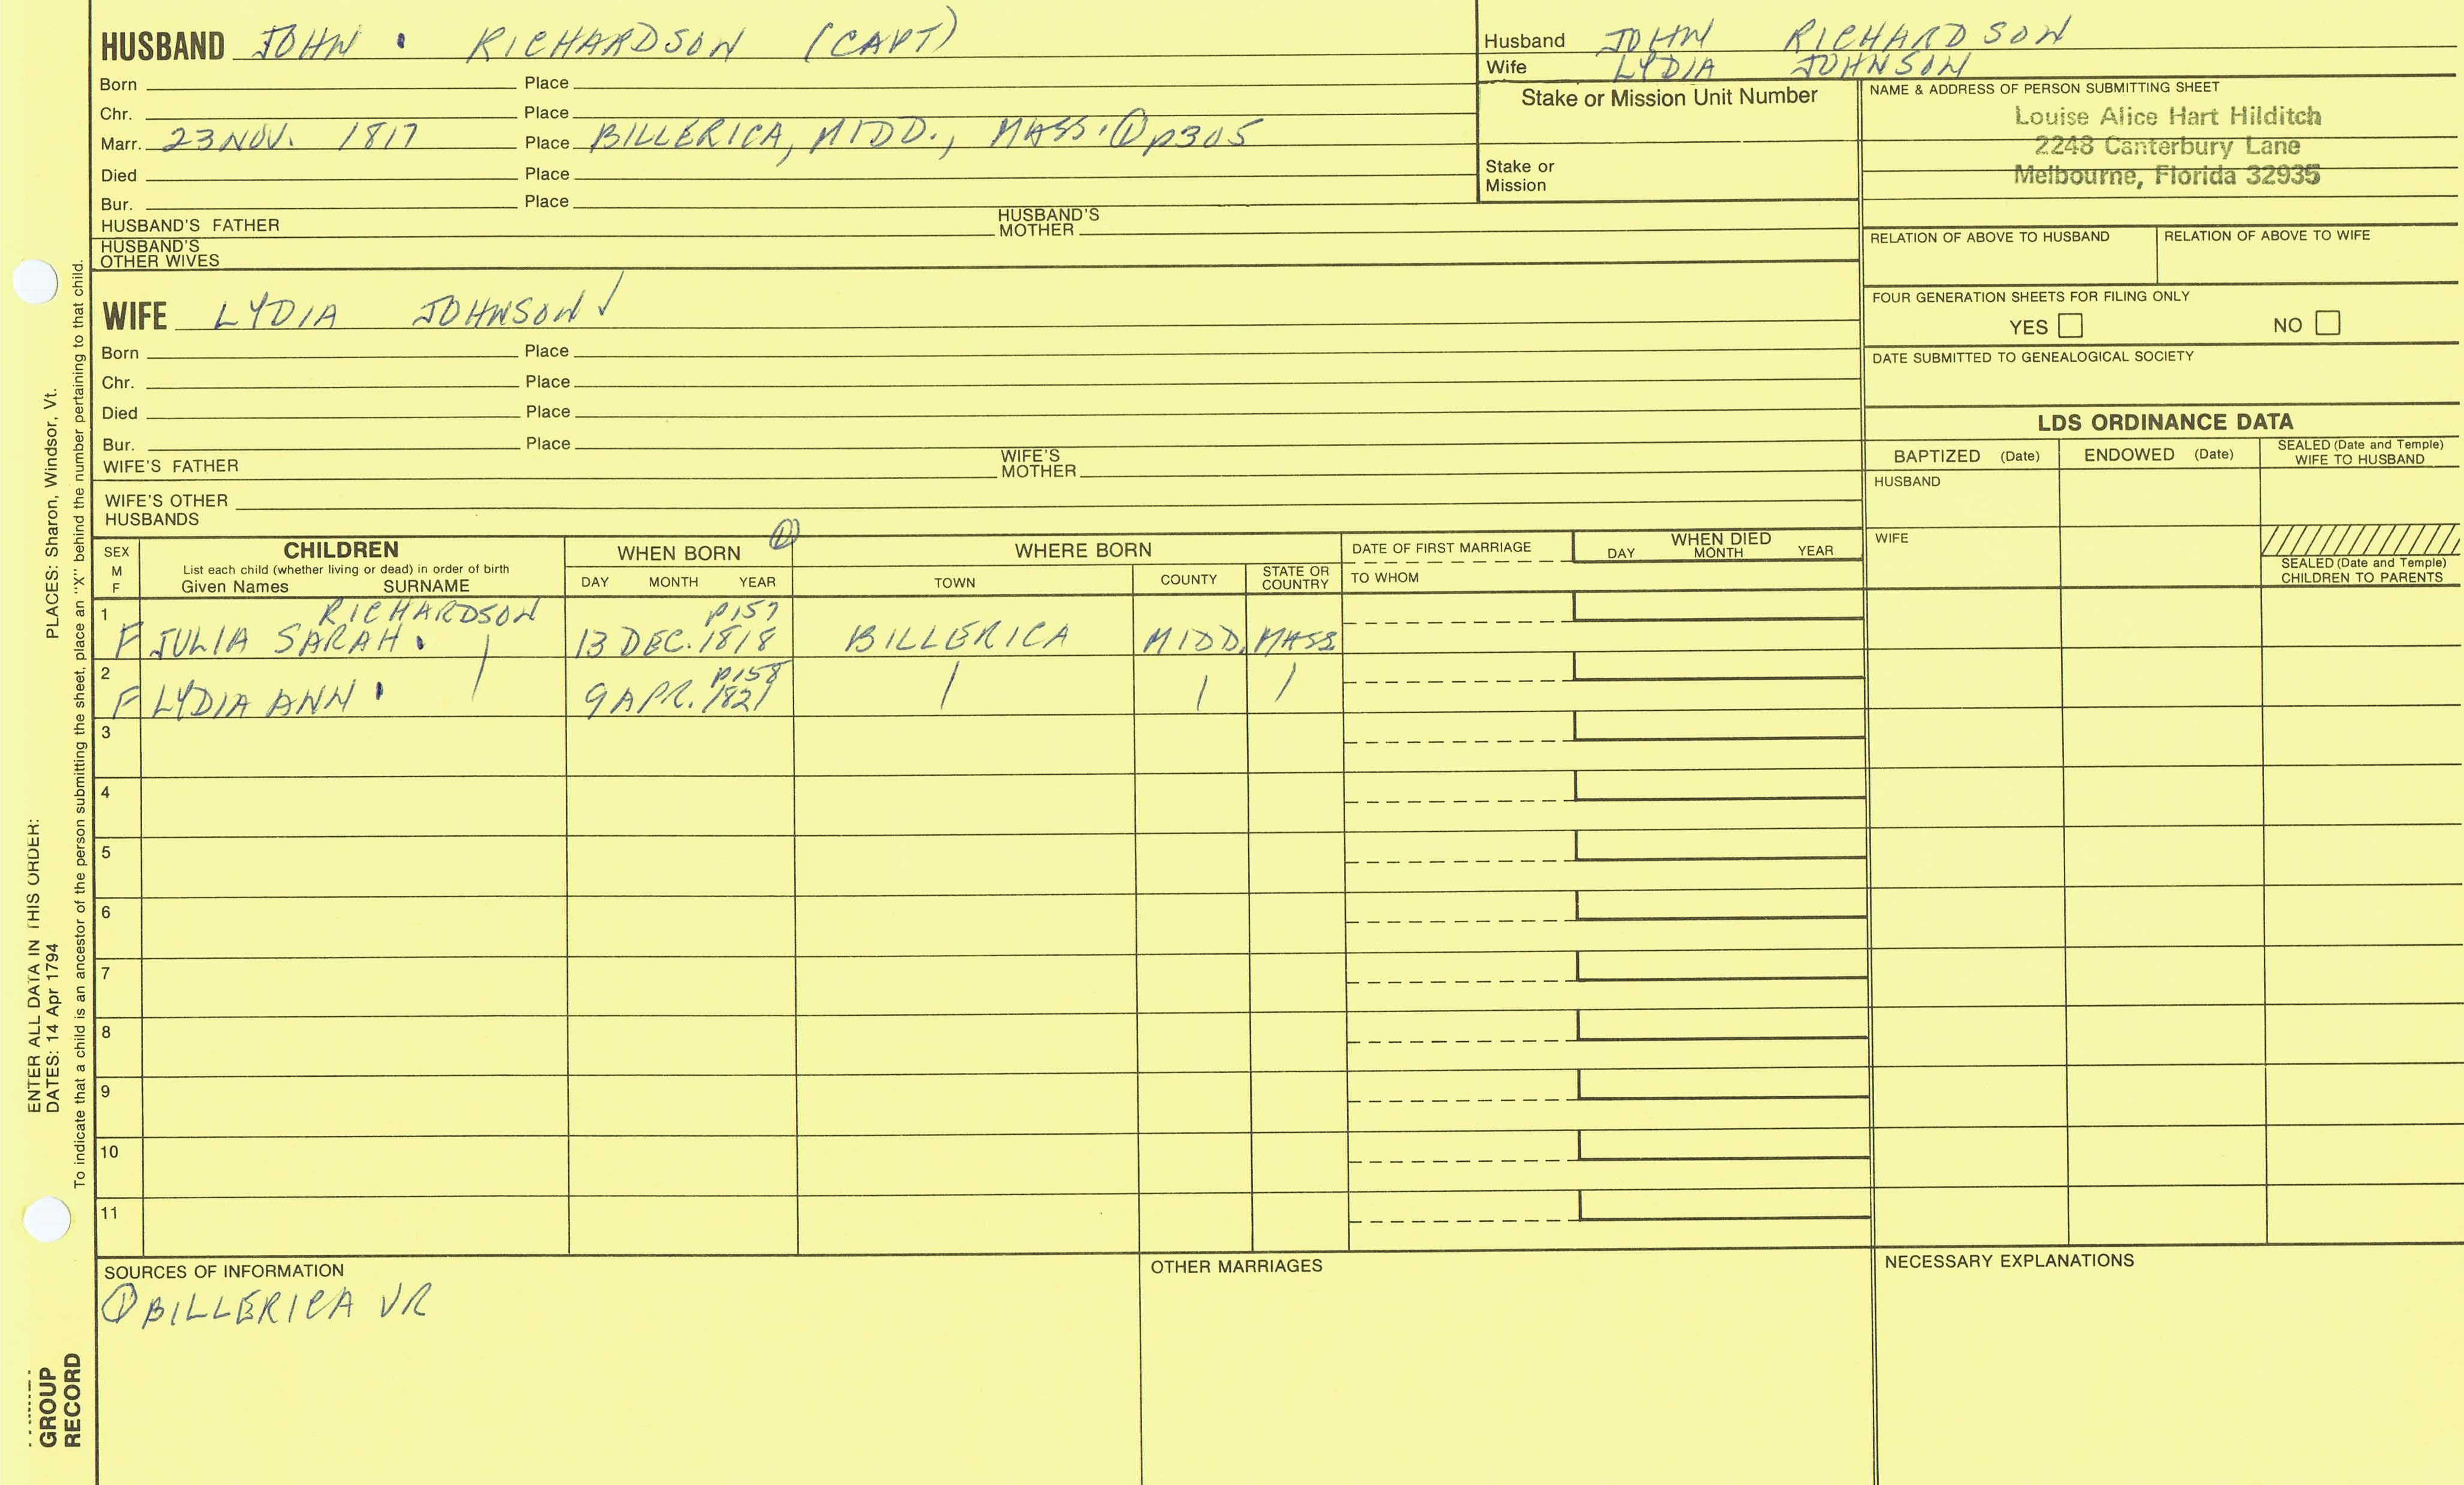 HUSBAND JOHN • RICHARDSON (CAPT)
Born Place
Chr. Place
Marr. 23 NOV. 1817 Place BILLERICA, MIDD., MASS. ① p305
Died Place
Bur. Place
HUSBAND'S FATHER HUSBAND'S MOTHER
HUSBAND'S OTHER WIVES
Husband JOHN RICHARDSON
Wife LYDIA JOHNSON
Stake or Mission Unit Number
Stake or Mission
NAME & ADDRESS OF PERSON SUBMITTING SHEET
Louise Alice Hart Hilditch
2248 Canterbury Lane
Melbourne, Florida 32935
RELATION OF ABOVE TO HUSBAND RELATION OF ABOVE TO WIFE
FOUR GENERATION SHEETS FOR FILING ONLY
YES NO
DATE SUBMITTED TO GENEALOGICAL SOCIETY
WIFE LYDIA JOHNSON ✓
Born Place
Chr. Place
Died Place
Bur. Place
WIFE'S FATHER WIFE'S MOTHER
WIFE'S OTHER HUSBANDS
LDS ORDINANCE DATA
BAPTIZED (Date) ENDOWED (Date) SEALED (Date and Temple) WIFE TO HUSBAND
HUSBAND
WIFE
SEALED (Date and Temple) CHILDREN TO PARENTS
SEX M F
CHILDREN
List each child (whether living or dead) in order of birth
Given Names SURNAME
WHEN BORN ①
DAY MONTH YEAR
WHERE BORN
TOWN COUNTY STATE OR COUNTRY
DATE OF FIRST MARRIAGE
TO WHOM
WHEN DIED
DAY MONTH YEAR
1 RICHARDSON p157
F JULIA SARAH • 13 DEC. 1818 BILLERICA MIDD. MASS
2 p158
F LYDIA ANN • | 9 APR. 1821 | | |
3
4
5
6
7
8
9
10
11
SOURCES OF INFORMATION
① BILLERICA VR
OTHER MARRIAGES
NECESSARY EXPLANATIONS
ENTER ALL DATA IN THIS ORDER:
DATES: 14 Apr 1794 PLACES: Sharon, Windsor, Vt.
To indicate that a child is an ancestor of the person submitting the sheet, place an "X" behind the number pertaining to that child.
GROUP
RECORD